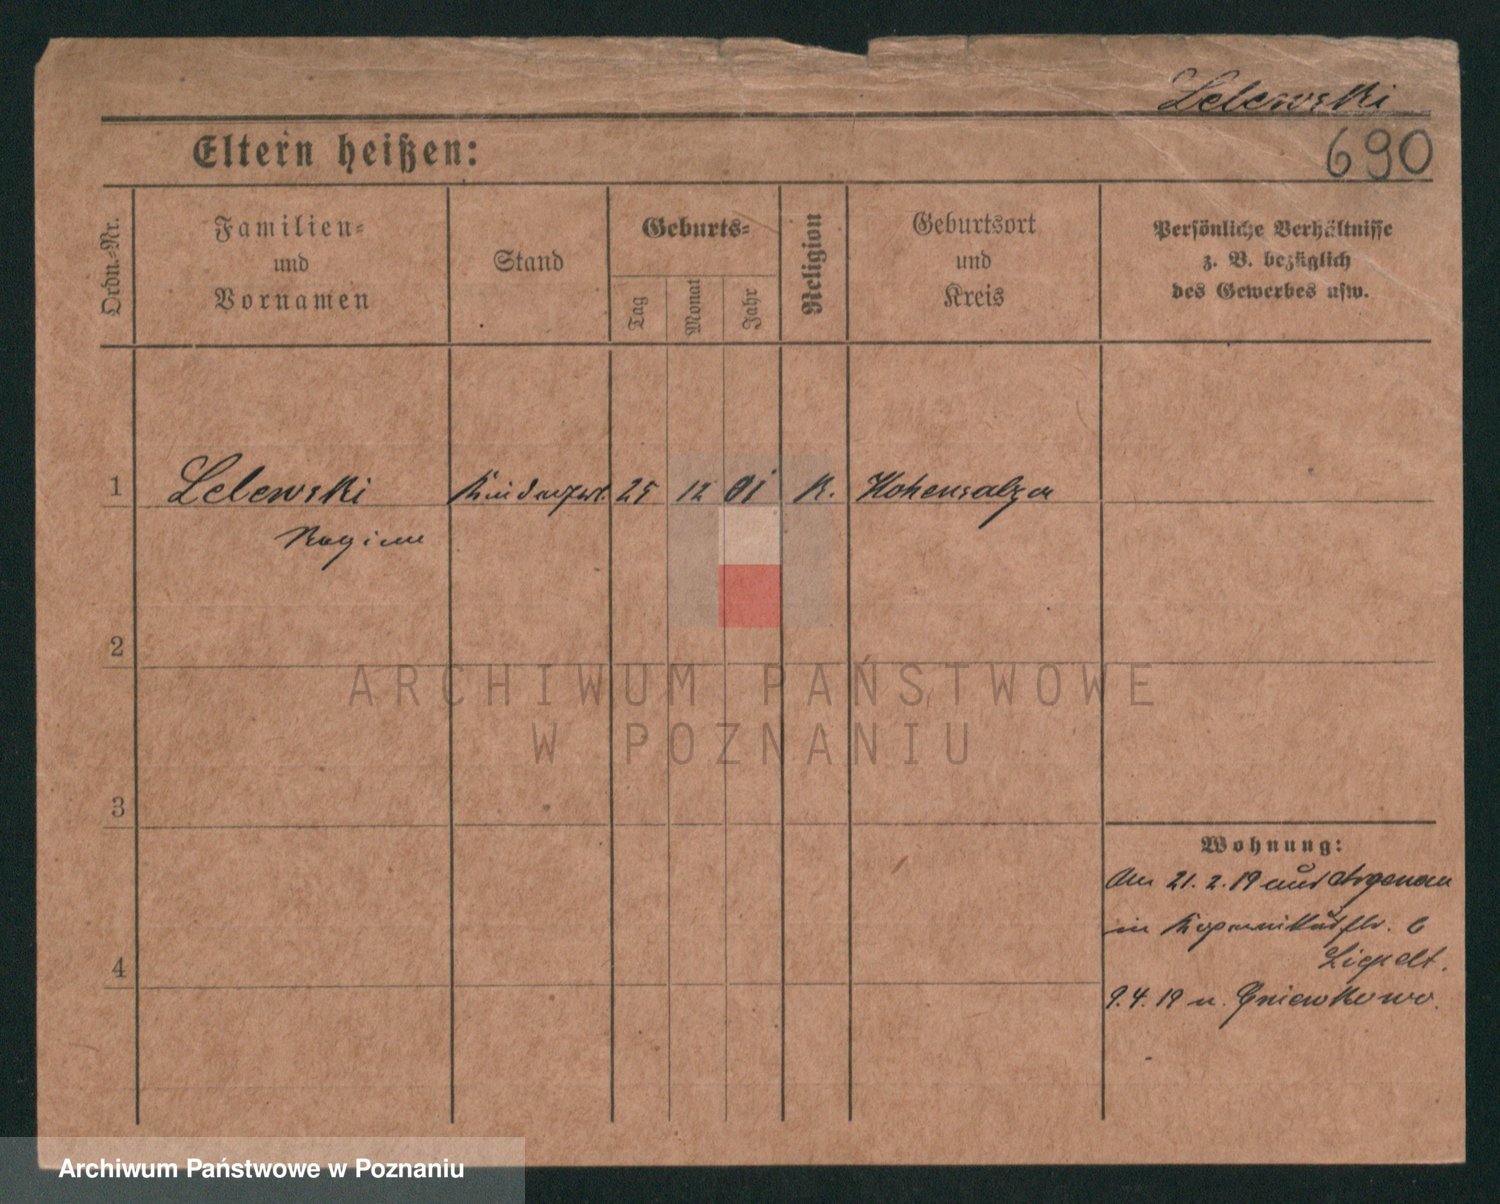 Lelewski
Eltern heißen:
690
Ordn.-Nr.
Familien-
und
Vornamen
Stand
Geburts-
Tag
Monat
Jahr
Religion
Geburtsort
und
Kreis
Persönliche Verhältnisse
z. B. bezüglich
des Gewerbes usw.
1 Lelewski 25 12 01 K. Hohensalza
2
ARCHIWUM PAŃSTWOWE
W POZNANIU
3
Wohnung:
Am 21. 2. 19 aus Argenau
in 6
Liepelt.
4
9. 4. 19 n. Gniewkowo.
Archiwum Państwowe w Poznaniu